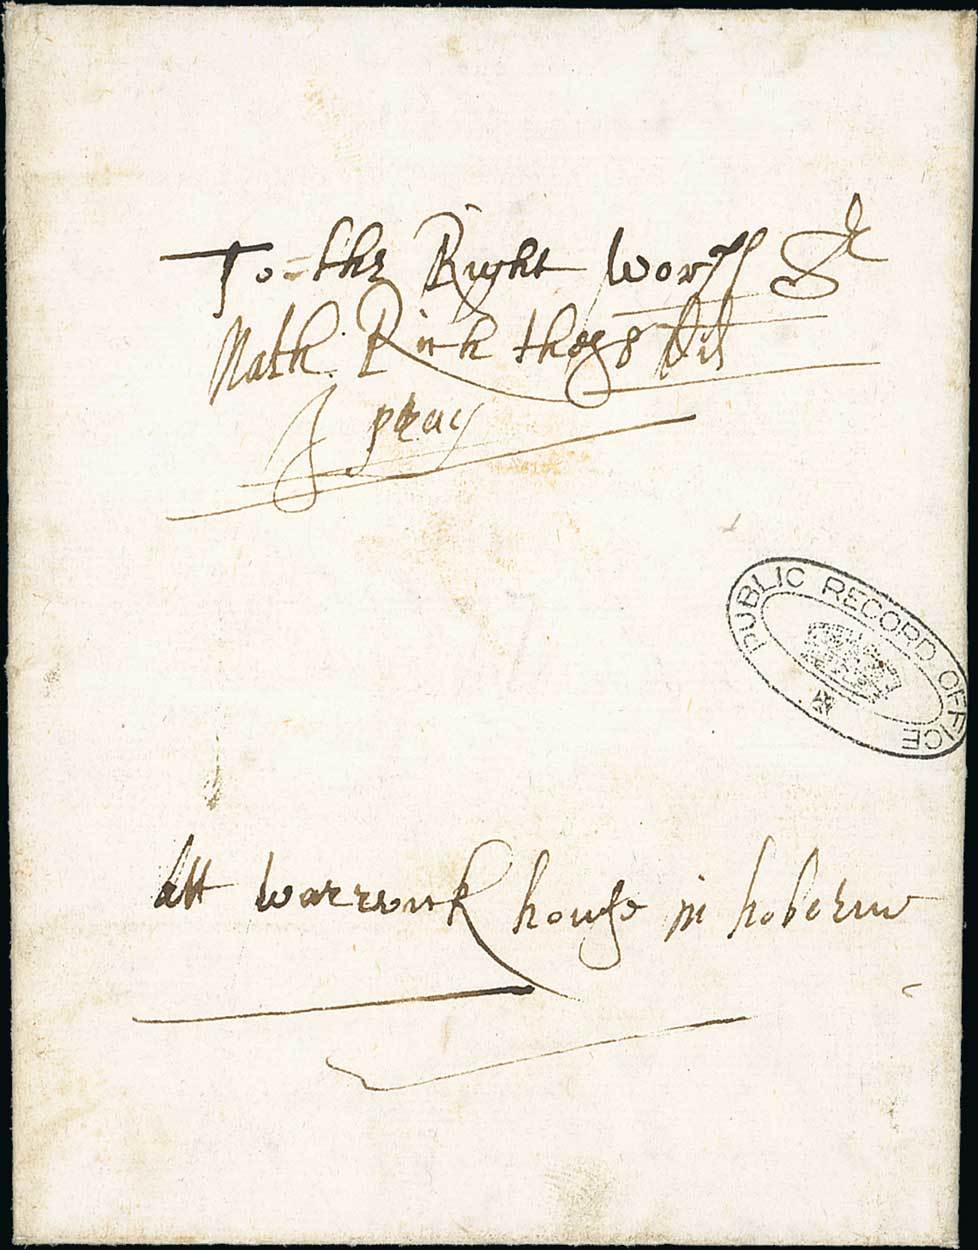 To the Right worll Sr
Nath. Rich thes dd
I pray
PUBLIC RECORD OFFICE
Att warrwick howse in hoberne